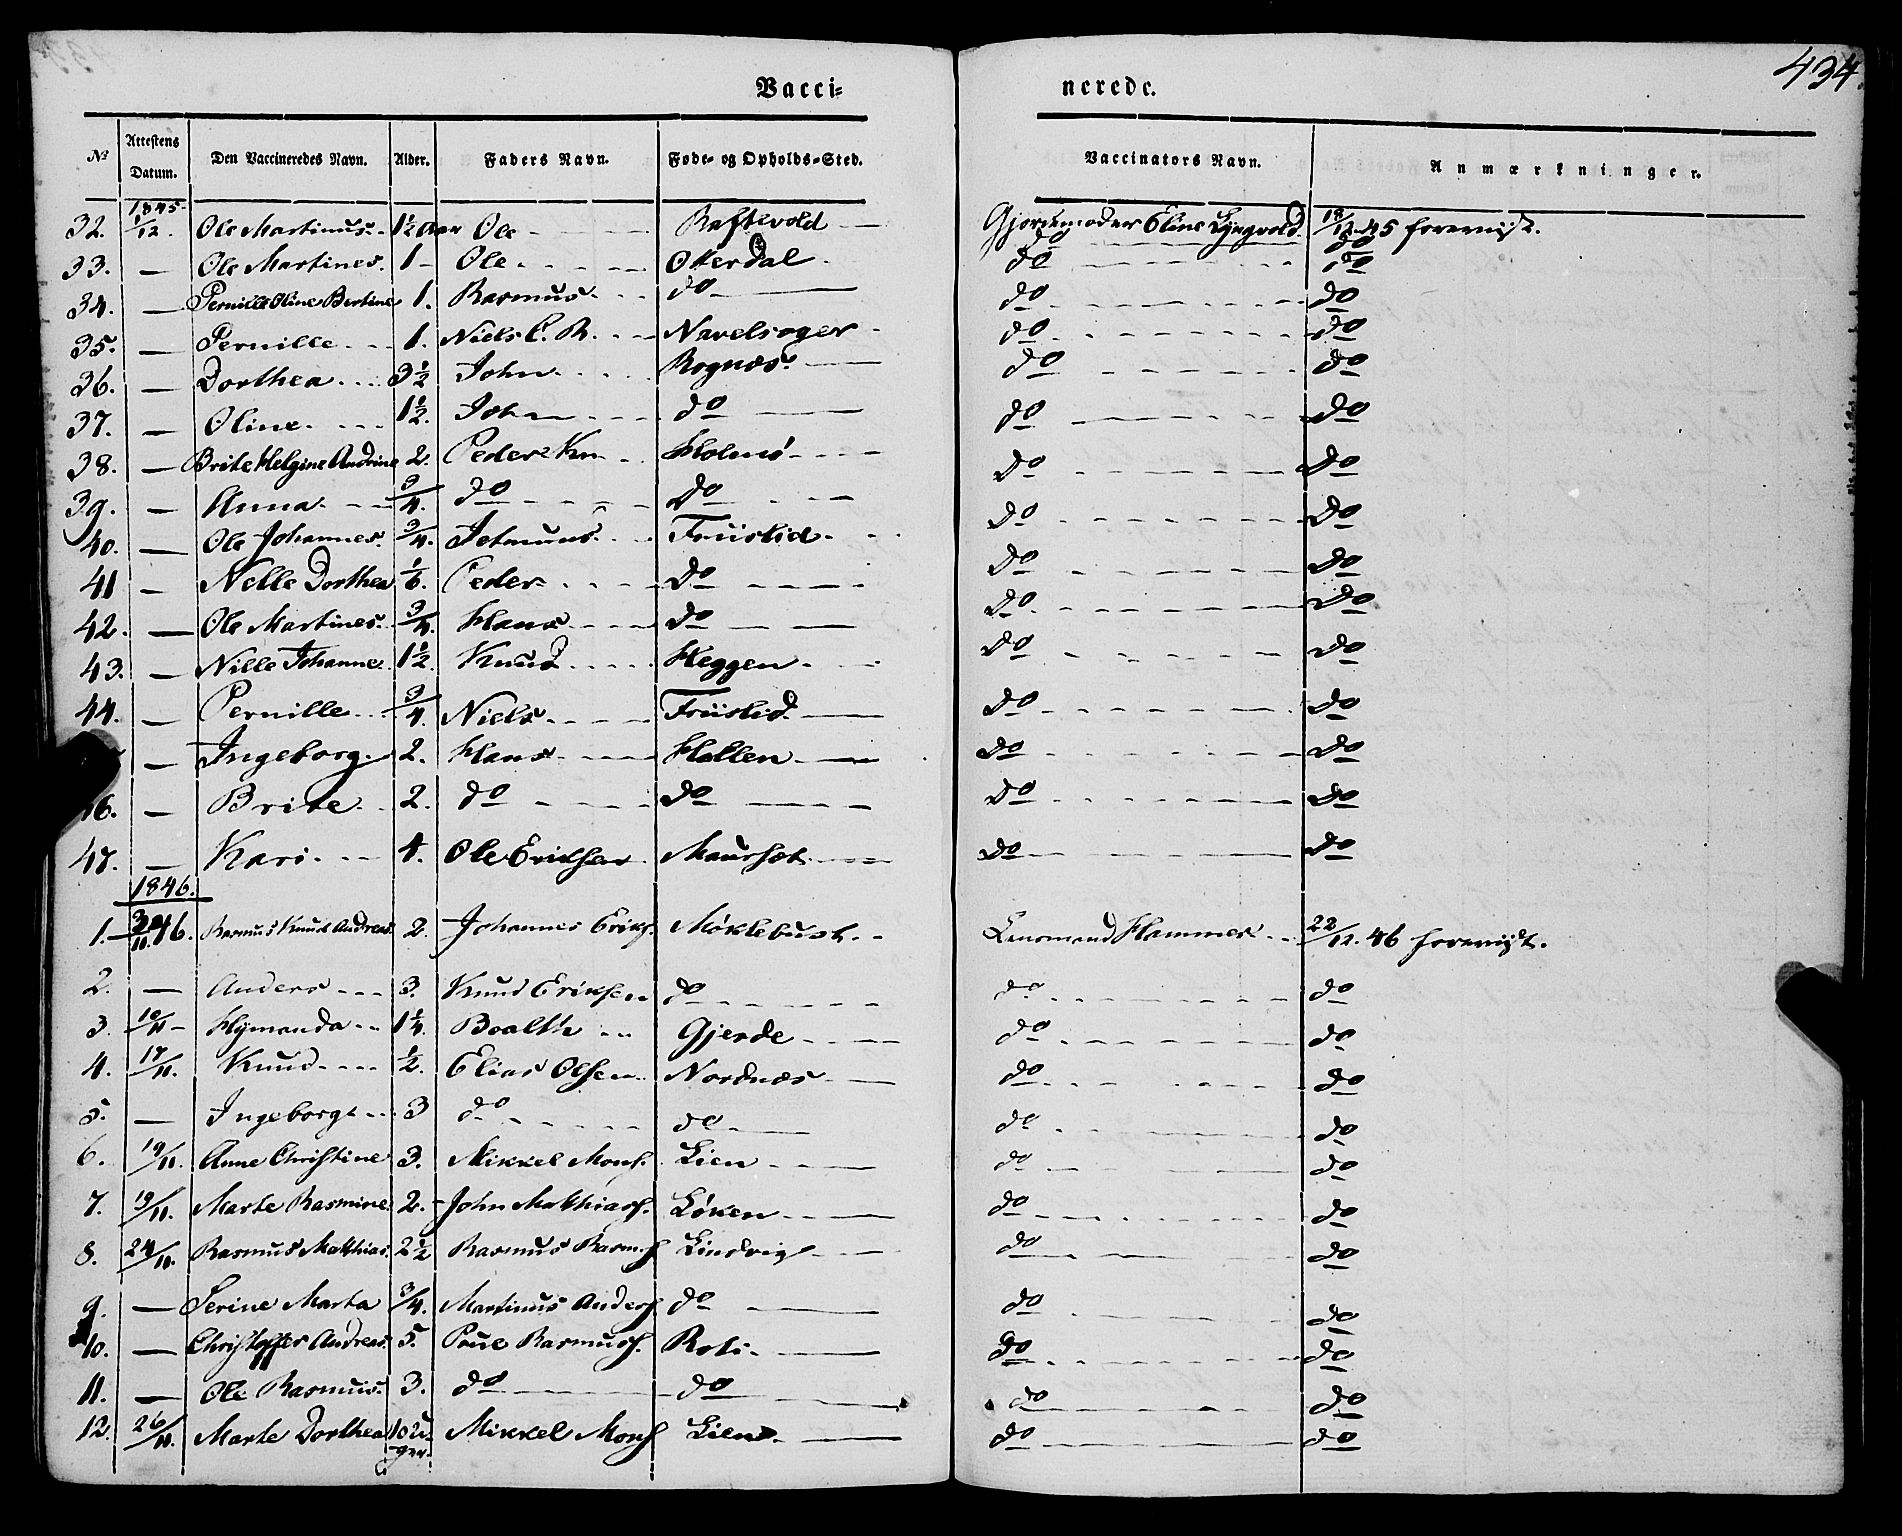 434.
Vacci= nerede.
No Attestens Datum. Den Vaccineredes Navn. Alder. Faders Navn. Føde- og Opholds-Sted. Vaccinators Navn. Anmærkninger.
1845
32. 1/12. Ole Martinus. 1½ Aar Ole Raftevold Gjordemoder Eline Lyngvold 18/12 45 foreviist.
33. — Ole Martines. 1 – Ole Otterdal do do
34. — Pernille Oline Bertine 1. Rasmus do do do
35. — Pernille 1. Niels C. R. Navelsager do do
36. — Dorthea 3½ John Rognæs do do
37. — Oline 1½. John do do do
38. — Brite Helgine Andrine 2. Peder Kn Holmø do do
39. — Anna 3/4. do do do do
40. — Ole Johannes. 3/4. Jetmund Friislid do do
41 — Nelle Dorthea 1/6. Peder do do do
42. — Ole Martines. 3/4. Hans do do do
43. — Nille Johanne 1½. Knud Heggen do do
44. — Pernille 3/4. Niels Friislid do do
— Ingeborg 2. Hans Hallen do do
46. — Brite 2. do do do do
47. — Kari 4. Ole Eriksen Maurset do do
1846.
1. 46. Rasmus Knud Andreas. 2. Johannes Eriks. Møklebust Lensmand Hammer 22/12. 46 foreviist.
2. — Anders 3. Knud Eriksen do do do
3. 10/11 – Hymanda 1¼. Boalth Gjerde do do
4. 17/11. Knud ½. Elias Olsen Nordnæs do do
5. — Ingeborg 3 do do do do
6. 19/11. Anne Christine 3. Mikkel Mons. Lien do do
7. 19/11. Marte Rasmine 2. John Mathias. Løken do do
8. 24/11. Rasmus Mathias. 2½ Rasmus Rasms Lindvig do do
9. — Serine Marta 3/4. Martinus Anders. do do do
10. — Christoffer Andreas. 5. Rasmuss. Roti do do
11. — Ole Rasmus. 3. do do do do
12. 26/11. Marte Dorthea 10 U-ger. Mikkel Mons Lien do do